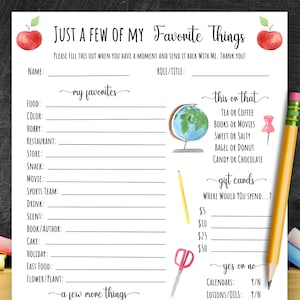 Just a few of my Favorite Things
Please fill this out when you have a moment and send it back With Me. Thank you!
Name: Role/Title:
my favorites
Food:
Color:
Hobby:
Restaurant:
Store:
Snack:
Movie:
Sports Team:
Drink:
Scent:
Book/Author:
Cake:
Holiday:
Fast Food:
Flower/Plant:
a few more things
this or that
Tea or Coffee
Books or Movies
Sweet or Salty
Bagel or Donut
Candy or Chocolate
gift cards
Where Would You Spend...?
$5
$10
$25
$50
yes or no
Calendars: Y/N
Lotions/Oils: Y/N